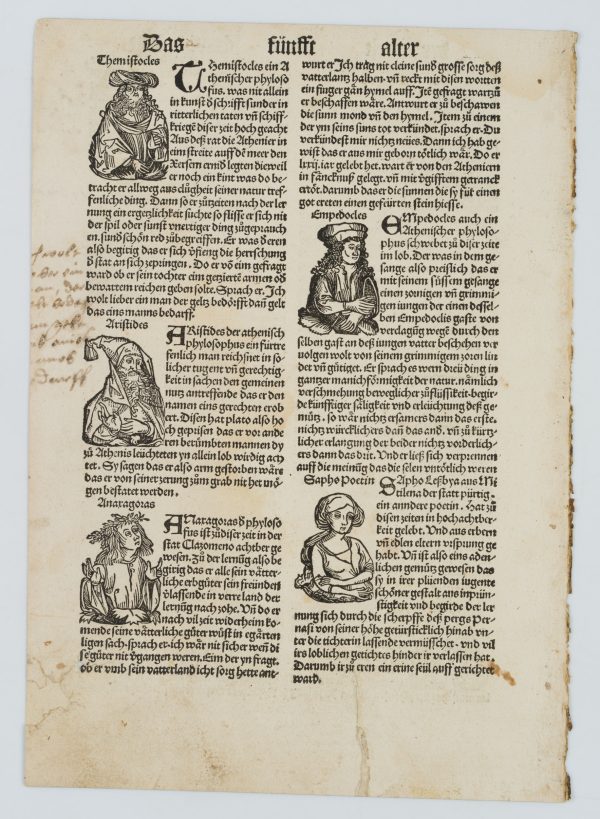 Das fünfft alter
Themistocles
Themistocles ein A
thenischer phyloso
fus. was nit allein
in kunst d' schrifft sunder in
ritterlichen taten vn̄ schiff-
kriege diser zeit hoch geacht
Auß deß rat die Athenier in
eim streite auff dē meer den
Xersem ernid legten dieweil
er noch ein kint was do be-
tracht er allweg aus clůgheit seiner natur tref-
fenliche ding. Dann so er zůzeiten nach der ler
nung ein ergezlichkeit sůchte so flisse er sich nit
der spil oder sunst vnerriger ding zůgeprauch
en. sund' schön red zůbegreiffen. Er was d'eren
also begirig das er sich
stat an sich zepringen. Do er vō eim gefragt
ward ob er sein tochter eim gezierrē armen od'
bewartem reichen geben solte. Sprach er. Ich
wolt lieber ein man der geltz bedörfft dan̄ gelt
das eins manns bedarff.
Aristides
Aristides der athenisch
phylosophus ein fürtre
fenlich man reichsnet in so-
licher tugent vn̄ gerechtig-
keit in sachen den gemeinen
nutz antreffende das er den
namen eins gerechten erob
ert. Disen hat plato also ho
ch geprisen das er vor ande
ren berümbten mannen dy
zů Athenis leüchteten yn allein lob wirdig ach
tet. Sy sagen das er also arm gestorben wäre
das er von seiner zerung zům grab nit het mö
gen bestatet werden.
Anaxagoras
Anaxagoras d' phyloso
fus ist zů diser zeit in der
stat Clazomeno achtber ge
wesen. Zů der lernūg also be
girig das er alle sein vätter-
liche erbgůter sein freünden
v'lassende in verre land der
lernūg nach zohe. Vn̄ do er
nach vil zeit widerheim ko-
mende seine vätterliche gůter wůst in egärten
ligen sach. sprach er. ich wär nit sicher wen̄ di
se gůter nit v'gangen weren. Eim der yn fragt.
ob er vmb sein vatterland icht sorg hette ant-
wurt er Ich trag nit cleine sund' grosse sorg deß
vatterlantz halben. vn̄ reckt mit disen wortten
ein finger gän hymel auff. Itē gefragt warzů
er beschaffen wäre. Antwurt er zů beschawen
die sunn mond vn̄ den hymel. Item zů einem
der yn seins suns tot verkündet. sprach er. Du
verkündest mir nichtz neües. Dann ich hab ge-
wist das er aus mir geborn tötlich wär. Do er
lxxij. iar gelebt het. wart er von den Atheniern
in fäncknuß gelegt. vn̄ mit v'gifftem geranck
ertöt. darumb das er die sunnen die sy für einen
got ereten einen gefürten stein hiesse.
Empedocles
Empedocles auch ein
Athenischer phyloso-
phus schwebet zů diser zeite
im lob. Der was in dem ge-
sange also preislich das er
mit seinem süssem gesange
einen zornigen vn̄ grimmi-
gen iungen der einen dessel-
ben Empedoclis gaste von
verdagūg wegē durch den
selben gast an deß iungen vatter beschehen ver
uolgen wolt von seinem grimmigem zoren lin
det vn̄ gütiget. Er sprach es wern dreü ding in
gantzer manichförmigkeit der natur. nämlich
verschmehung beweglicher zůflüssikeit. begir-
de künfftiger säligkeit vnd erleüchtung deß ge-
můtz. so wär nichtz ersamers dann das erste.
nichtz würcklichers dan̄ das and'. vn̄ zů kürtz-
licher erlangung der beider nichtz vorderlich-
ers dann das drit. Vnd er ließ sich verprennen
auff die meinūg das die selen vntötlich weren
Sapho Poetin
Sapho Lesbya aus Mi
tilena der statt pürtig.
ein anndere poetin. Hat zů
disen zeiten in hochachtber-
keit gelebt. Vnd aus erbern
vn̄ edlen eltern vrsprung ge
habt. Vn̄ ist also eins aden-
lichen gemütz gewesen das
sy in irer plüenden iugente
schöner gestalt aus inprün-
stigkeit vnd begirde der ler
nung sich durch die scherpffe deß pergs Per-
nasi von seiner höhe getürsticklich hinab vn-
ter die tichterin lassende vermüsschet. vnd vil
irs loblichen gerichtes hinder ir verlassen hat.
Darumb ir zů eren ein erine seül auff gerichtet
ward.